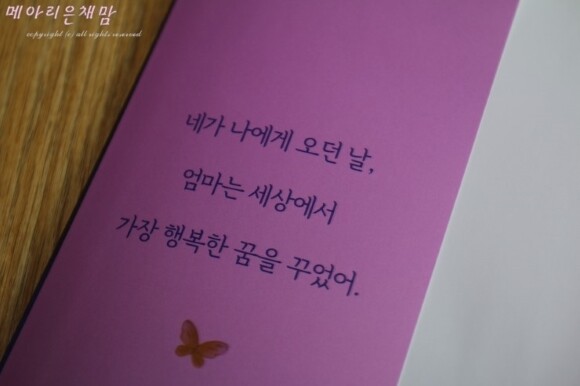 메아리은채맘
copyright (c) all rights reserved
네가 나에게 오던 날,
엄마는 세상에서
가장 행복한 꿈을 꾸었어.